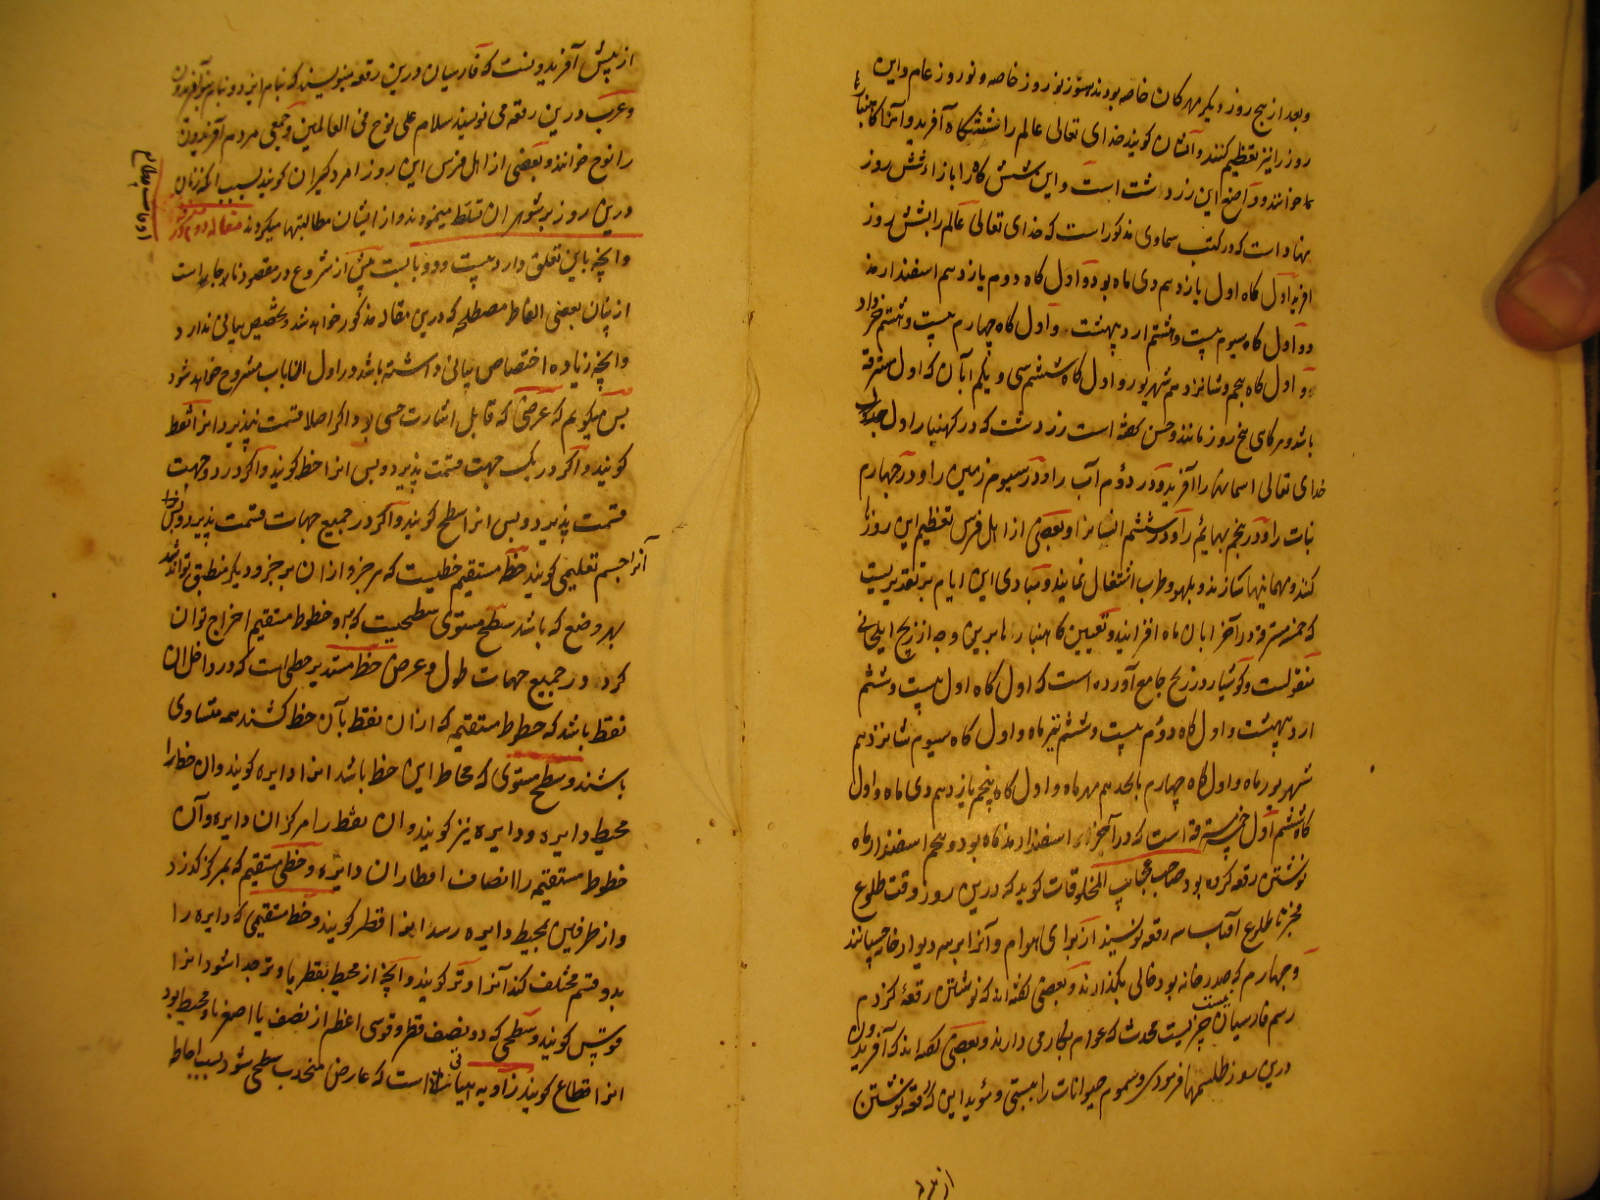 وبعد از پنج روز دیگر مهرکان خاصه بود ند هنوز نوروز خاصه و نوروز عام و این
روز را نیز تعظیم کنند و آتشان کویند خدای تعالی عالم را بشش کاه آفرید و آنرا کاهنبار
ها خوانند و واضع این زردشت است و این شش کاه را بازاء شش روز
نهاد است که در کتب سماوی مذکور است که خدای تعالی عالم را بشش روز
افرید اول کاه اول یازدهم دی ماه بود و اول کاه دوم یازدهم اسفندارمذ
و اول کاه سیوم بیست و هشتم اردیبهشت و اول کاه چهارم بیست و هشتم خرداد
و اول کاه پنجم شانزدهم شهریور و اول کاه ششم سی و یکم آبان که اول مسترقه
باشد و هر کاهی پنج روز مانند و حسن کفته است زردشت که در کهنبار اول
خدای تعالی اسمان را آفرید و در دوم آب را و در سیوم زمین را و در چهارم
نبات را و در پنجم بهایم را و در ششم انسانرا و بعضی از اهل فرس تعظیم این روزها
کنند و مهمانیها سازند و بلهو و طرب اشتغال نمایند و مبادی این ایام بر تقدیریست
که خمسه مسترقه در آخر ابان ماه افزایند و تعیین کاهنبارها برین وجه از زیج ایلخانی
منقولست و کوشیار در زیج جامع آورده است که اول کاه اول بیست و ششم
اردیبهشت و اول کاه دوم بیست و ششم تیر ماه و اول کاه سیوم شانزدهم
شهریور ماه و اول کاه چهارم یانزدهم مهر ماه و اول کاه پنجم یازدهم دی ماه و اول
کاه ششم اول خمسه مسترقه است که در آخر اسفندارمذ ماه بود و پنجم اسفندارماه
نوشتن رقعه کرده بود صاحب عجایب المخلوقات کوید که درین روز وقت طلوع
فجر تا طلوع آفتاب سه رقعه نویسند از برای هوام و آنرا بر سه دیوار خانه چسپانند
و چهارم که صدر خانه بود خالی بگذارند و بعضی کفته اند که نوشتن رقعهٔ کژدم
رسم فارسیان نیست چیزیست محدث که عوام بکار می دارند و بعضی کفته اند که آفریدون
درین روز طلسمها فرمودی و سموم حیوانات را ببستی و مؤید این که رقعه نوشتن
از پیش
از پیش آفریدونست که فارسیان درین رقعه بنویسند که بنام ایزد و بنام نیو آفریدون
و عرب درین رقعه می نویسند سلام علی نوح فی العالمین و جمعی مردم آفریدون
را نوح خوانند و بعضی از اهل فرس این روز را مردکیران کویند بسبب آنکه زنان
درین روز بر شوهران تسلط مینمودند و از ایشان مطالبتها میکردند مقاله دوم در
و آنچه باین تعلق دارد بیست و دو بابست پیش از شروع در مقصود ناچار است
از بیان بعضی الفاظ مصطلحه که درین مقاله مذکور خواهد شد و تخصیص ببابی ندارد
و آنچه زیاده اختصاص ببابی داشته باشد در اول ان باب مشروح خواهد شود
پس میکویم که عرضی که قابل اشارت حسی بود اگر اصلا قسمت نپذیرد انرا نقطه
کویند و اکر در یک جهت قسمت پذیرد و بس انرا خط کویند و اکر در دو جهت
قسمت پذیرد و بس انرا سطح کویند و اکر در جمیع جهات قسمت پذیرد
آنرا جسم تعلیمی کویند خط مستقیم خطیست که هر جزو از ان بر جزو دیگر منطبق تواند شد
بهر وضع که باشد سطح مستوی سطحیست که برو خطوط مستقیم اخراج توان
کرد در جمیع جهات طول و عرض خط مستدیر خطی است که در داخل ان
نقطه باشد که خطوط مستقیمه که از ان نقطه بآن خط کشند همه متساوی
باشند و سطح مستوی که محاط این خط باشد انرا دایره کویند و ان خط را
محیط دایره و دایره نیز کویند و ان نقطه را مرکز ان دایره و آن
خطوط مستقیمه را انصاف اقطار ان دایره و خطی مستقیم که بمرکز کذرد
و از طرفین بمحیط دایره رسد انرا قطر کویند و خط مستقیمی که دایره را
بدو قسم مختلف کند آنرا وتر کویند و آنچه از محیط بقطر یا وتر جدا شود انرا
قوس کویند و سطحی که دو نصف قطر و قوسی اعظم از نصف یا اصغر باو محیط بود
انرا قطاع کویند زاویه هیأتی است که عارض منحدب سطحی شود بسبب احاطه